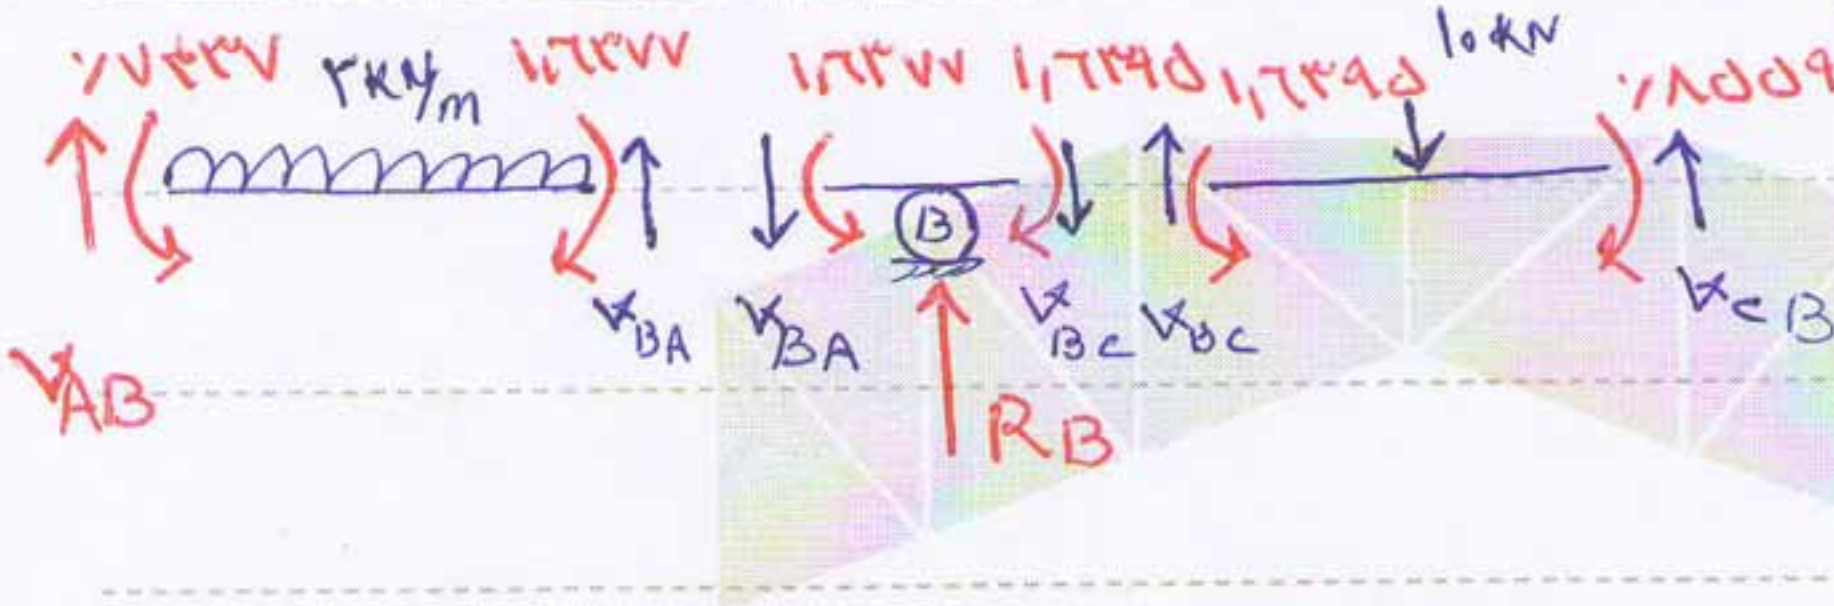 /۷۴۳۷ ۲KN/m ۱,۶۳۷۷ ۱,۶۳۷۷ ۱,۶۳۹۵ ۱,۶۳۹۵ ۱۰KN /۸۵۵۹
B
VBA VBA VBC VBC VCB
VAB RB